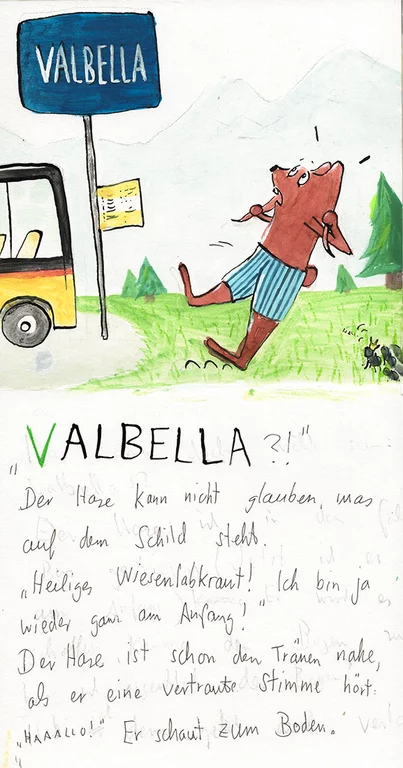 VALBELLA
„VALBELLA?!"
Der Hase kann nicht glauben, was
auf dem Schild steht.
„Heiliges Wiesenlabkraut! Ich bin ja
wieder ganz am Anfang!"
Der Hase ist schon den Tränen nahe,
als er eine vertraute Stimme hört:
„HAAALLO!" Er schaut zum Boden.